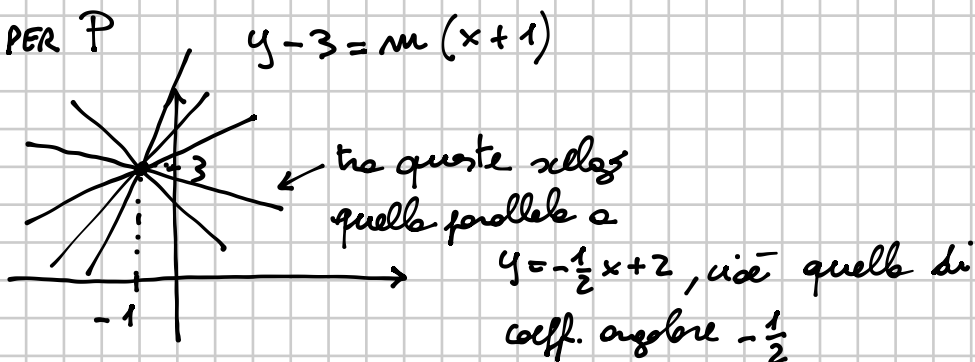 PER P
y - 3 = m (x + 1)
3
tra queste scelgo
quella parallela a
y = -1/2 x + 2, cioè quella di
coeff. angolare -1/2
-1